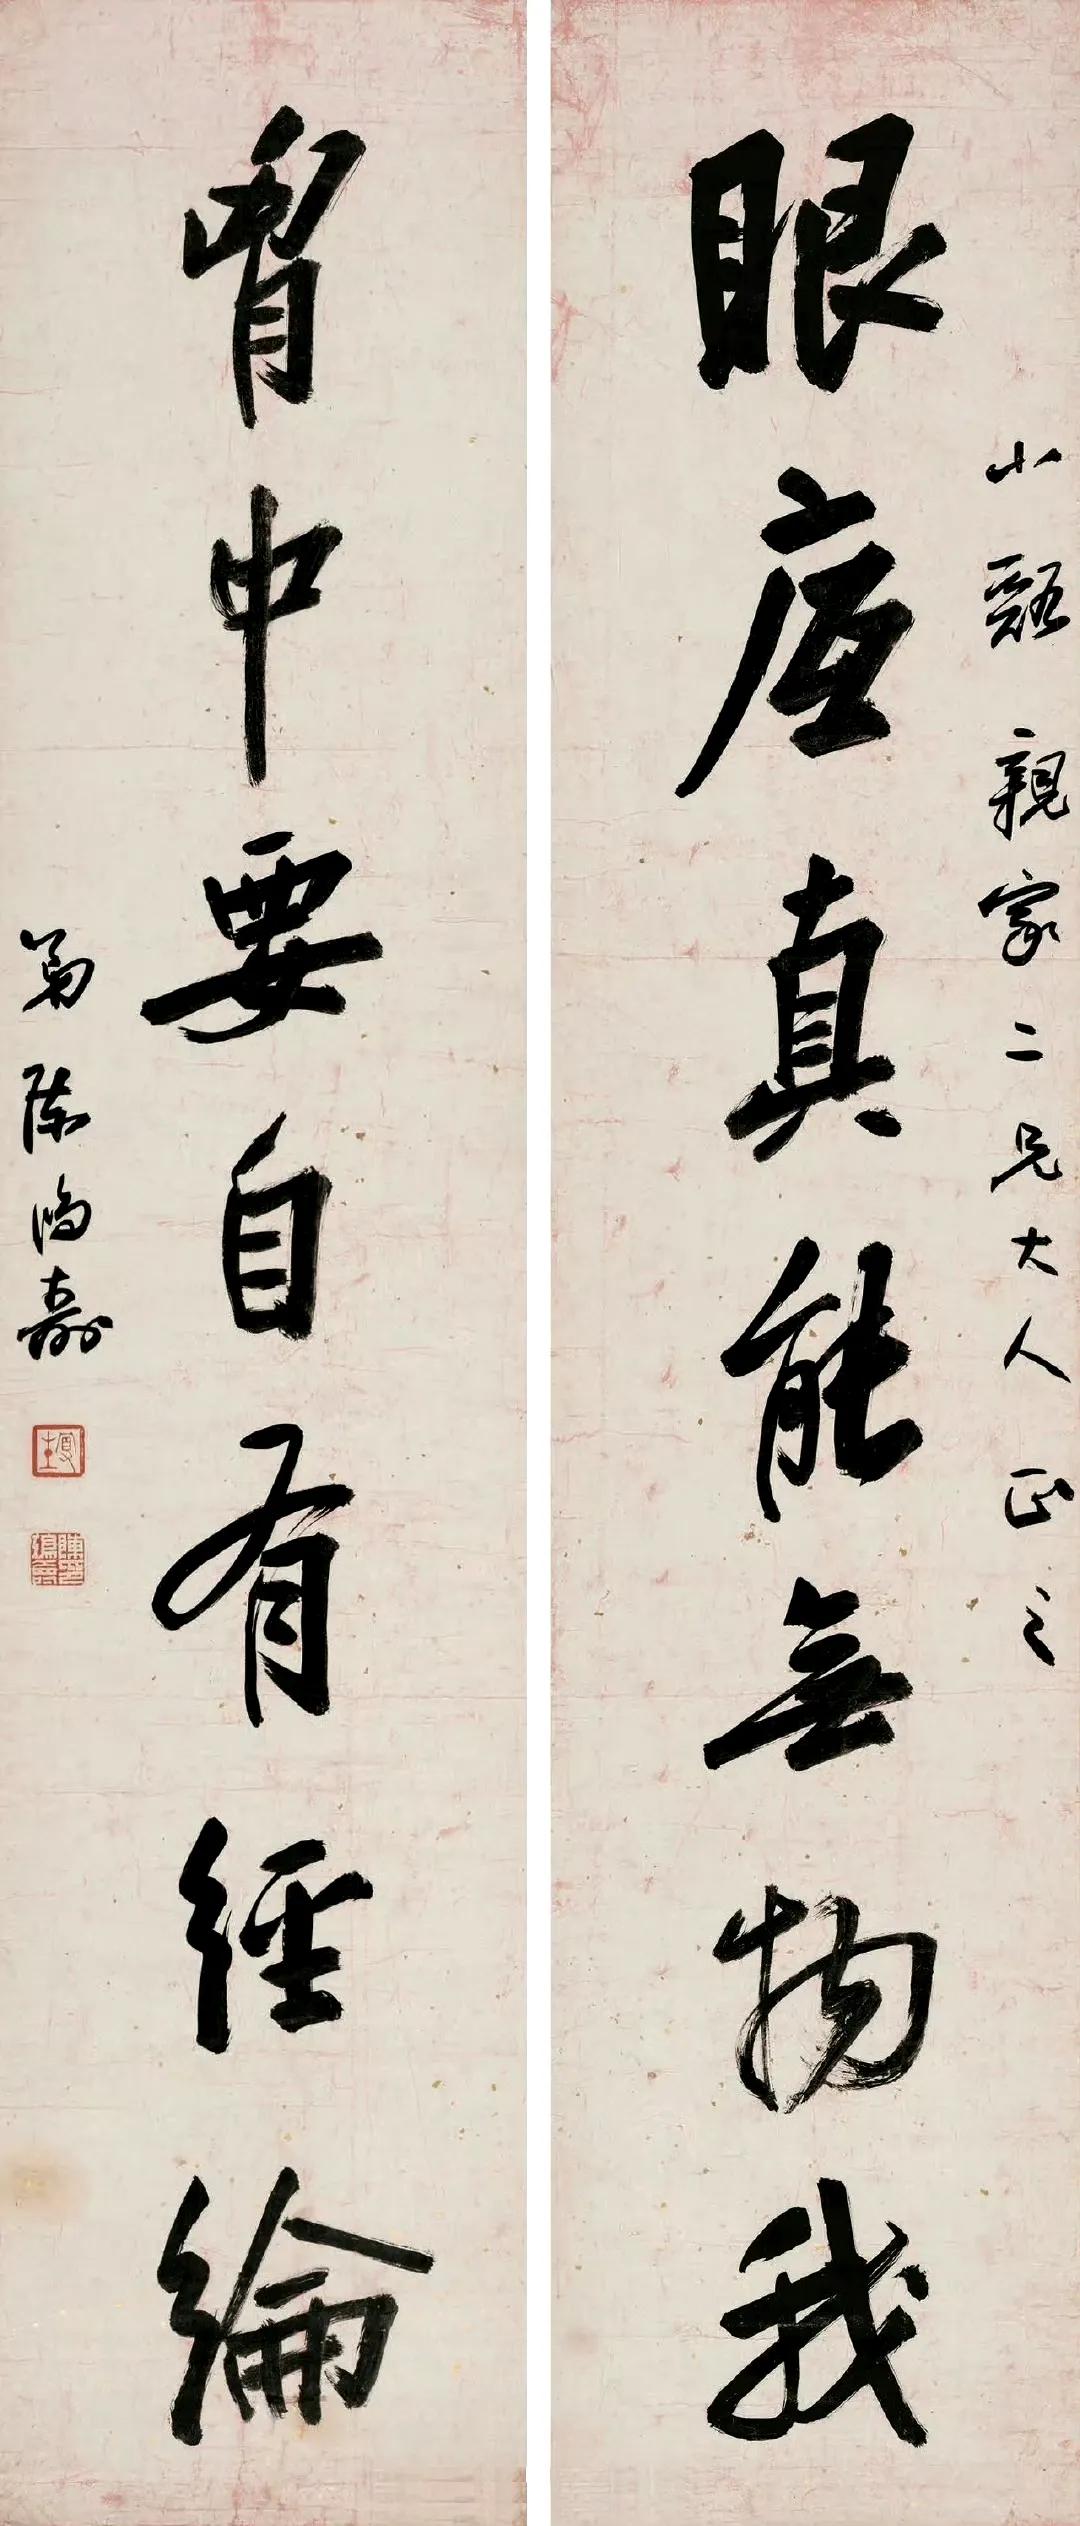 小谿親家二兄大人正之
眼底真能無物我
胷中要自有經綸
弟陳鴻壽